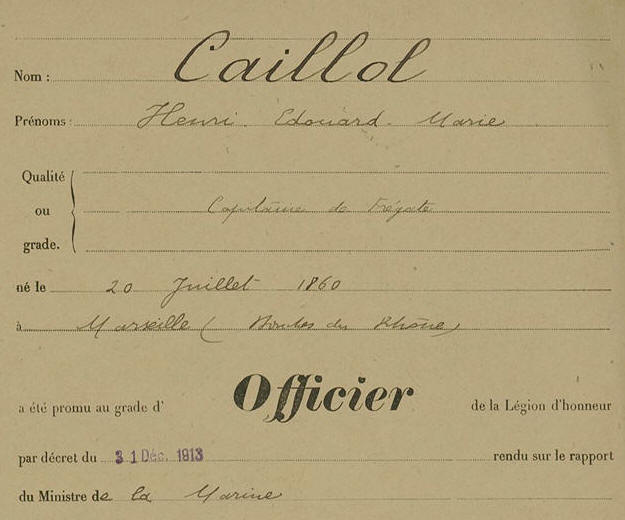 Nom : Caillol
Prénoms : Henri. Edouard. Marie
Qualité
ou Capitaine de Frégate
grade.
né le 20 Juillet 1860
à Marseille (Bouches du Rhône)
a été promu au grade d' Officier de la Légion d'honneur
par décret du 31 Déc. 1913 rendu sur le rapport
du Ministre de la Marine